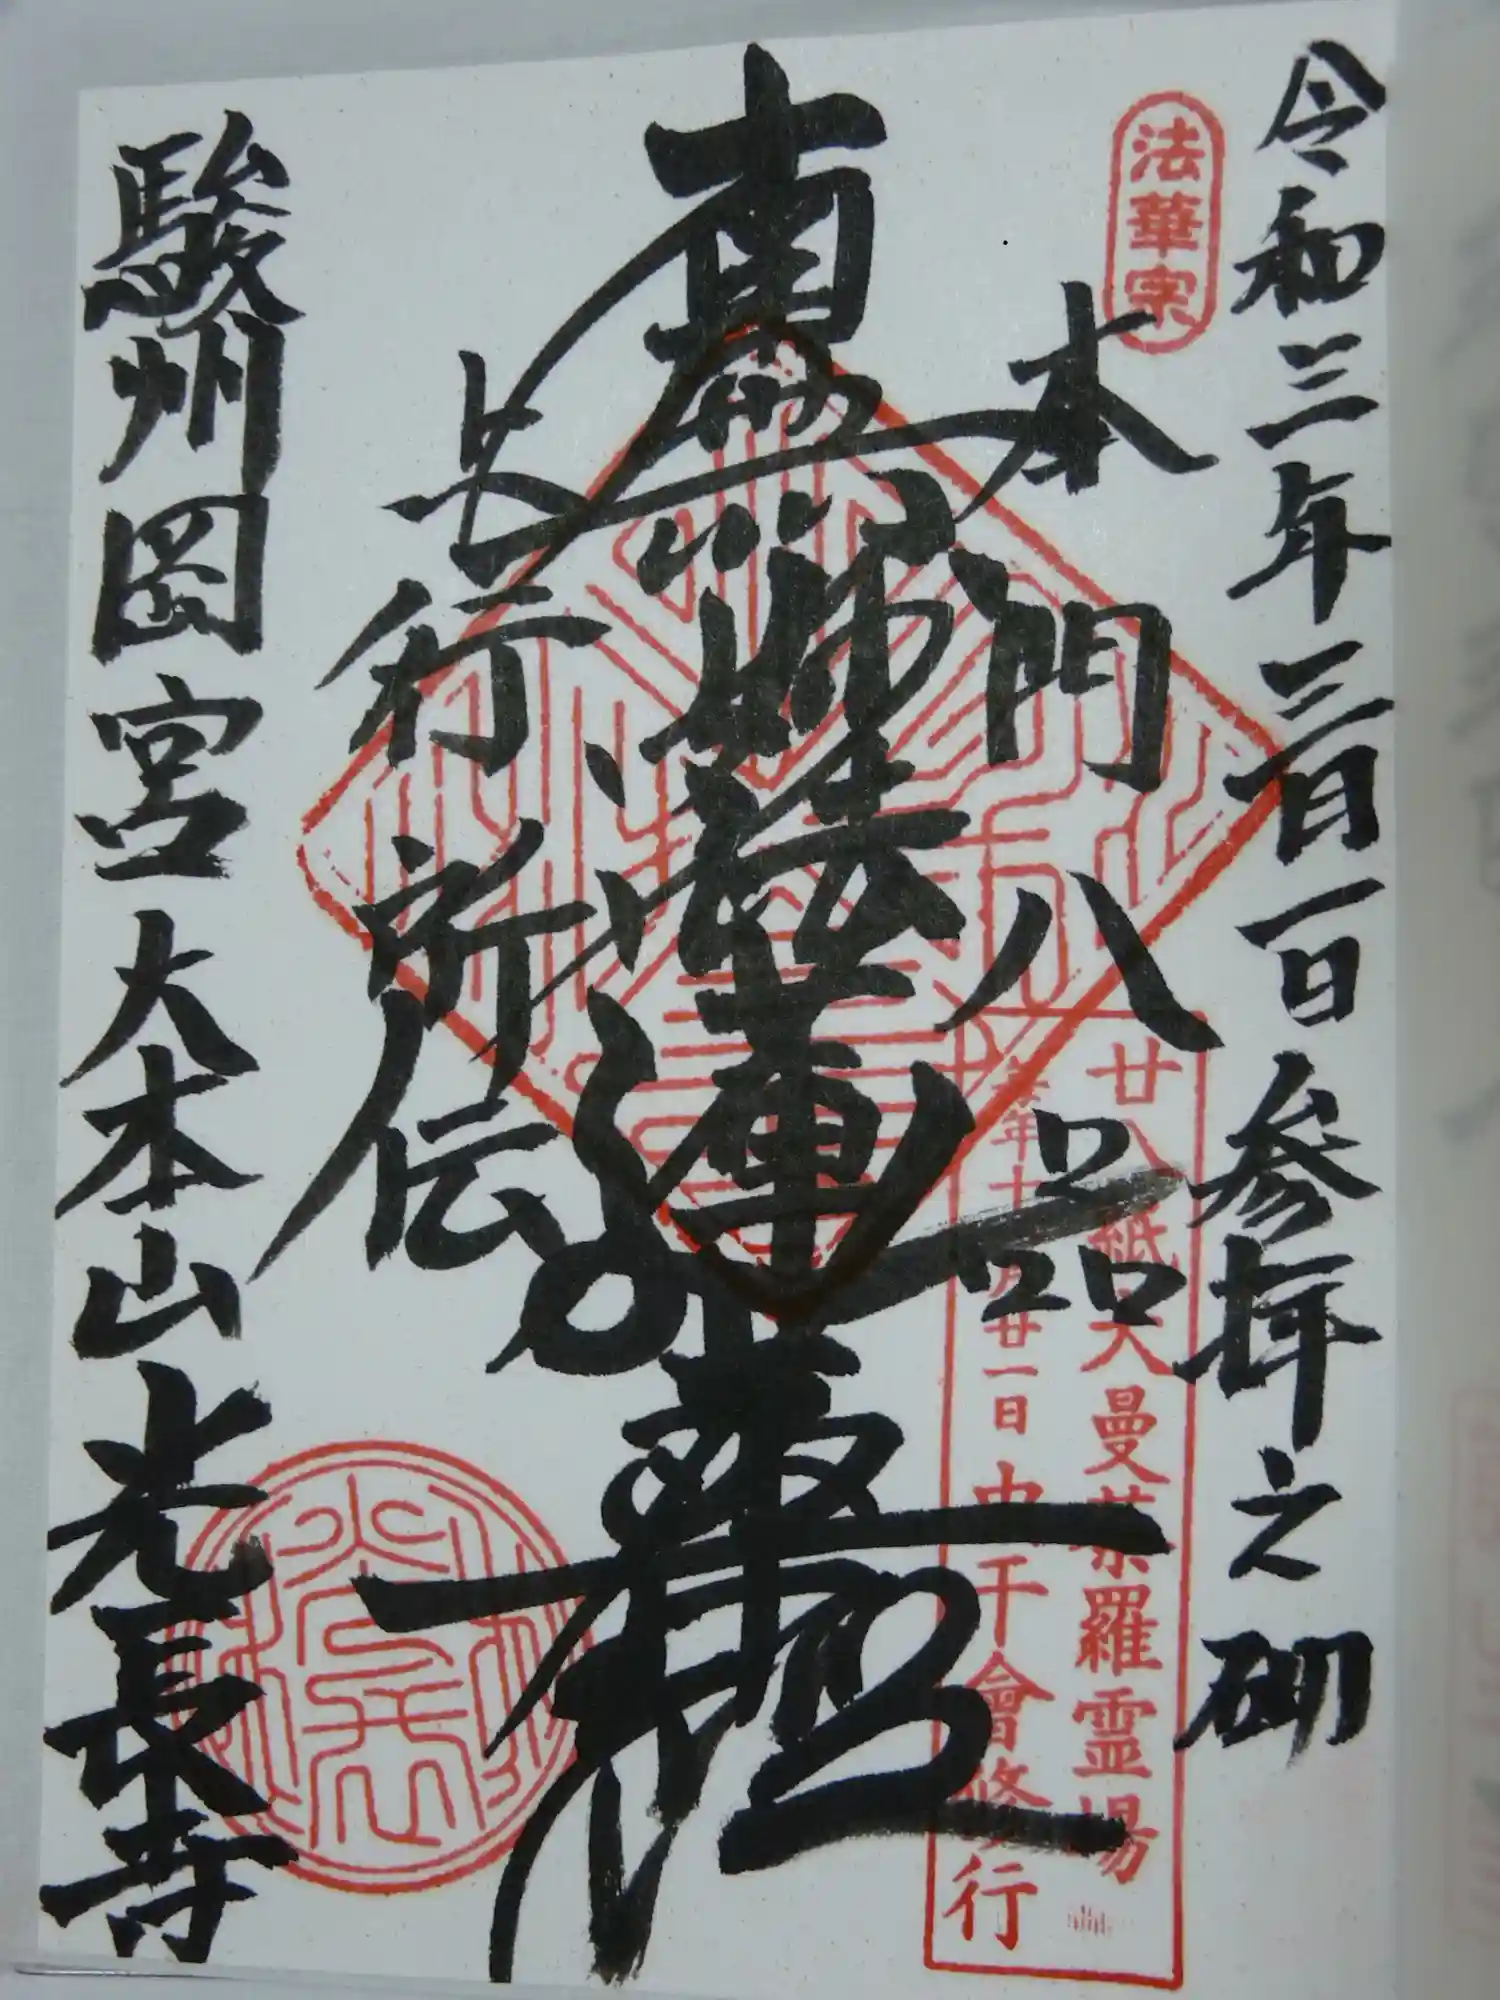 令和三年三月一日参拝之砌
法華宗
本門八品
廿八紙大曼荼羅霊場
毎年十月廿一日虫干會修行
南無妙法蓮華経
上行所伝
駿州岡宮大本山光長寺